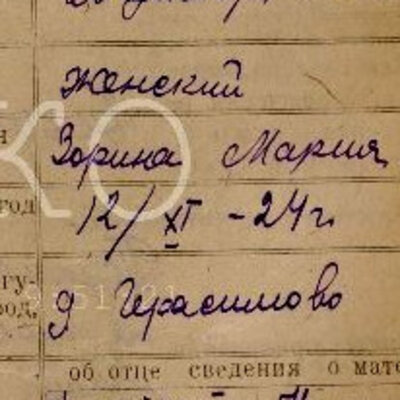 Женский
Зорина Мария
год 12/XI - 24 г.
гу-
род, д Герасимово
об отце сведения о мате